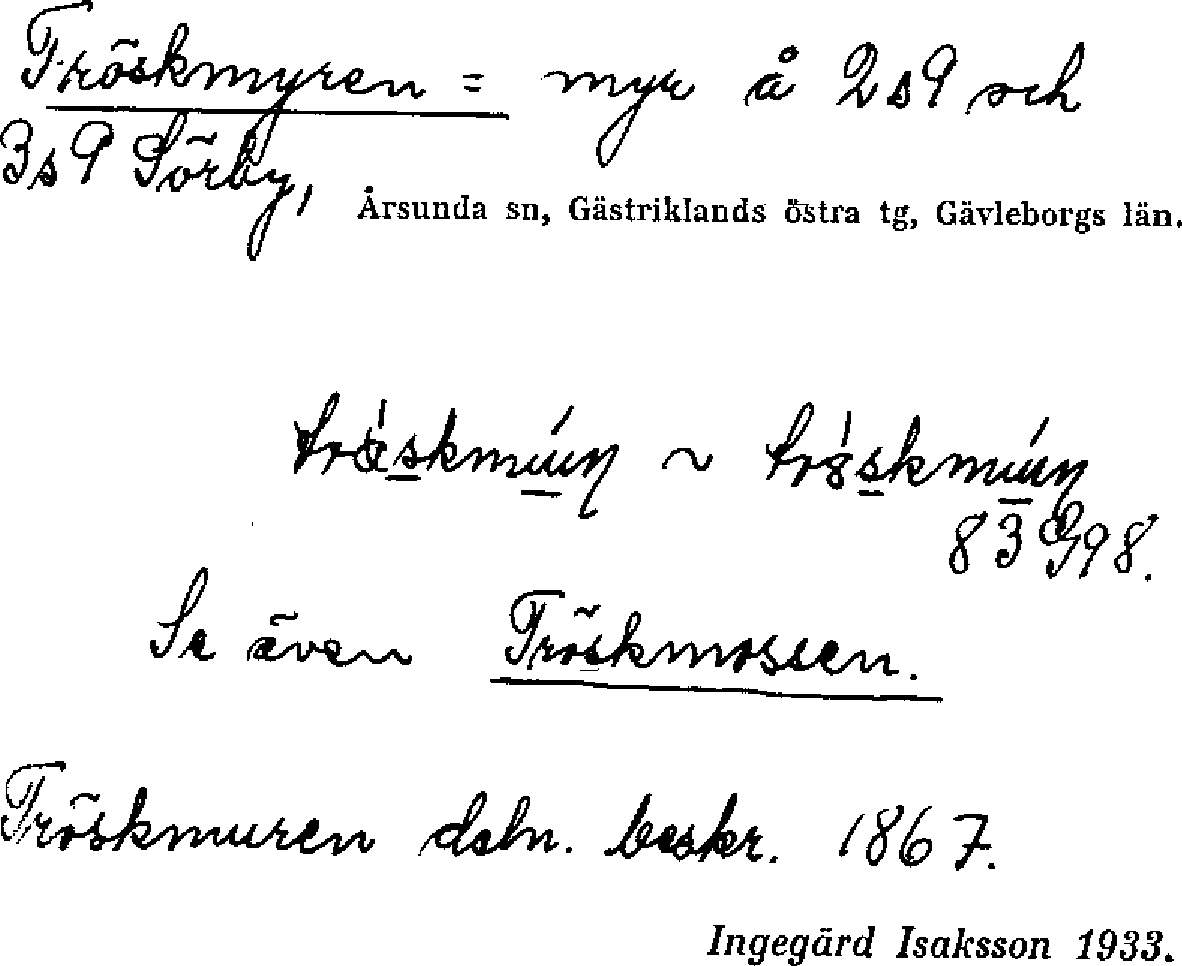 Tröskmyren = myr å 2s9 och
3s9 Sörby,
Årsunda sn, Gästriklands östra tg, Gävleborgs län.
83 G98.
Se även Tröskmossen.
Tröskmuren dsbn. beskr. 1867.
Ingegärd Isaksson 1933.